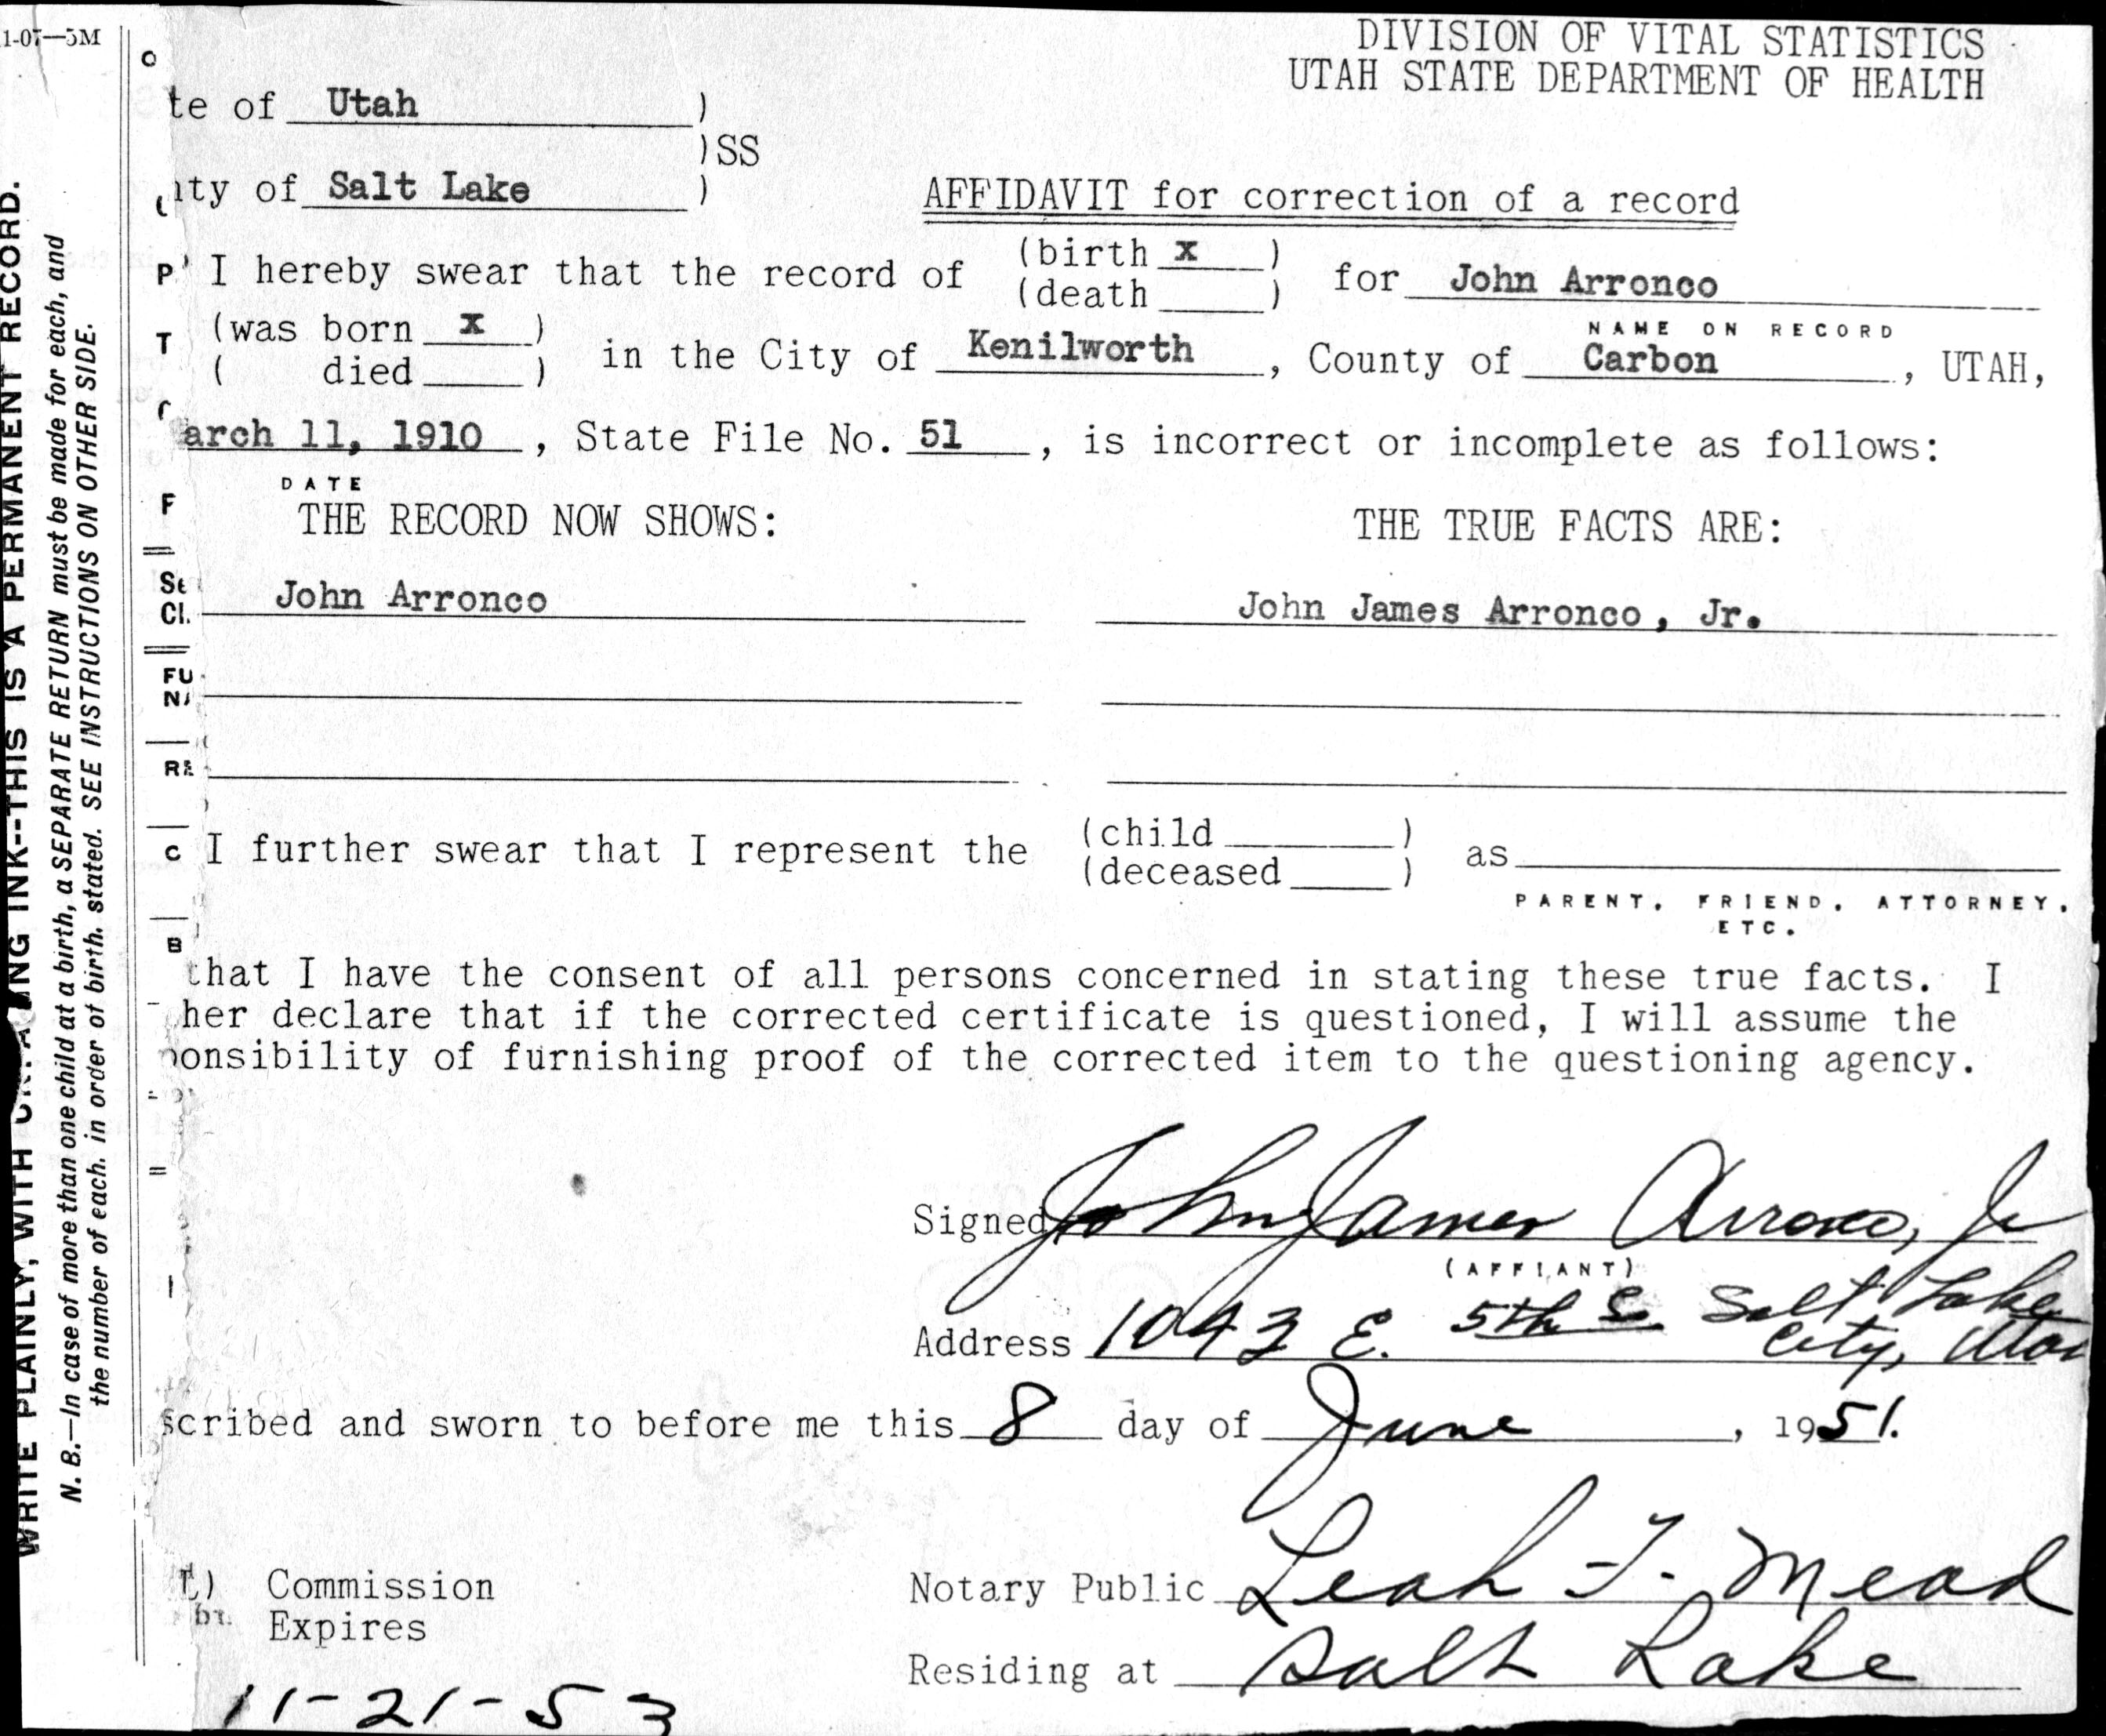 1-07—5M
DIVISION OF VITAL STATISTICS
UTAH STATE DEPARTMENT OF HEALTH
te of Utah )
)SS
nty of Salt Lake )
AFFIDAVIT for correction of a record
I hereby swear that the record of (birth x )
(death ) for John Arronco
NAME ON RECORD
(was born x )
( died ) in the City of Kenilworth , County of Carbon , UTAH,
arch 11, 1910 , State File No. 51 , is incorrect or incomplete as follows:
DATE
THE RECORD NOW SHOWS: THE TRUE FACTS ARE:
John Arronco John James Arronco, Jr.
I further swear that I represent the (child )
(deceased ) as
PARENT, FRIEND, ATTORNEY,
ETC.
that I have the consent of all persons concerned in stating these true facts. I
her declare that if the corrected certificate is questioned, I will assume the
onsibility of furnishing proof of the corrected item to the questioning agency.
Signed John James Arronco, Jr
(AFFIANT)
Address 1043 E. 5th S. Salt Lake
City, Utah
scribed and sworn to before me this 8 day of June , 1951.
Notary Public Leah T. Mead
Residing at Salt Lake
L) Commission
Expires
11-21-53
WRITE PLAINLY, WITH UNFADING INK--THIS IS A PERMANENT RECORD.
N. B.—In case of more than one child at a birth, a SEPARATE RETURN must be made for each, and
the number of each. in order of birth. stated. SEE INSTRUCTIONS ON OTHER SIDE.